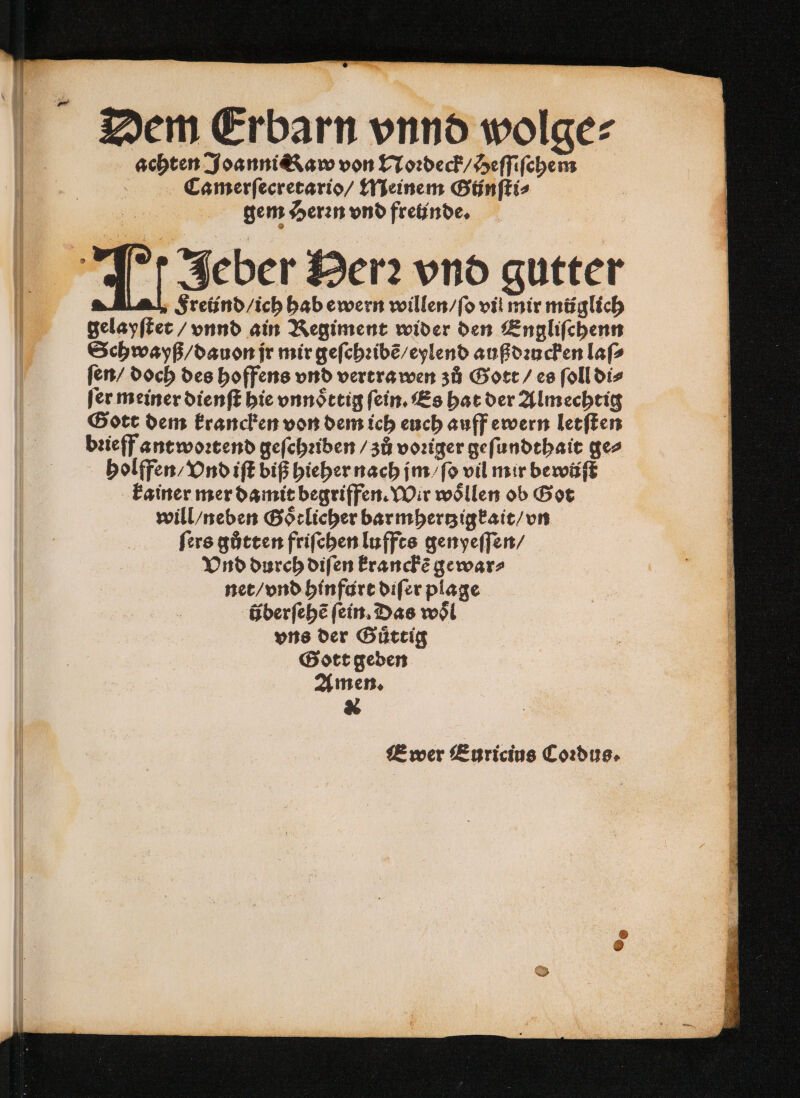 Dem Erbarn vnnd wolge⸗
achten Joanni Raw von Nordeck/Heſſiſchem
Camerſecretario/ Meinem Günſti⸗
gem Herrn vnd freünde.
LIeber Herr vnd gutter
Freünd/ich hab ewern willen/ſo vil mir müglich
gelayſtet / vnnd ain Regiment wider den Engliſchenn
Schwayß/dauon jr mir geſchribẽ/eylend außdrucken laſ⸗
ſen/ doch des hoffens vnd vertrawen zů Gott / es ſoll di⸗
ſer meiner dienſt hie vnnöttig ſein. Es hat der Almechtig
Gott dem krancken von dem ich euch auff ewern letſten
brieff antwortend geſchriben / zů voriger geſundthait ge⸗
holffen/Vnd iſt biß hieher nach jm/ſo vil mir bewüſt
kainer mer damit begriffen. Wir wöllen ob Got
will/neben Götlicher barmhertzigkait/vn
ſers gůtten friſchen luffts genyeſſen/
Vnd durch diſen kranckẽ gewar⸗
net/vnd hinfürt diſer plage
überſehẽ ſein. Das wöl
vns der Gůttig
Gott geben
Amen.
Ewer Euricius Cordus.